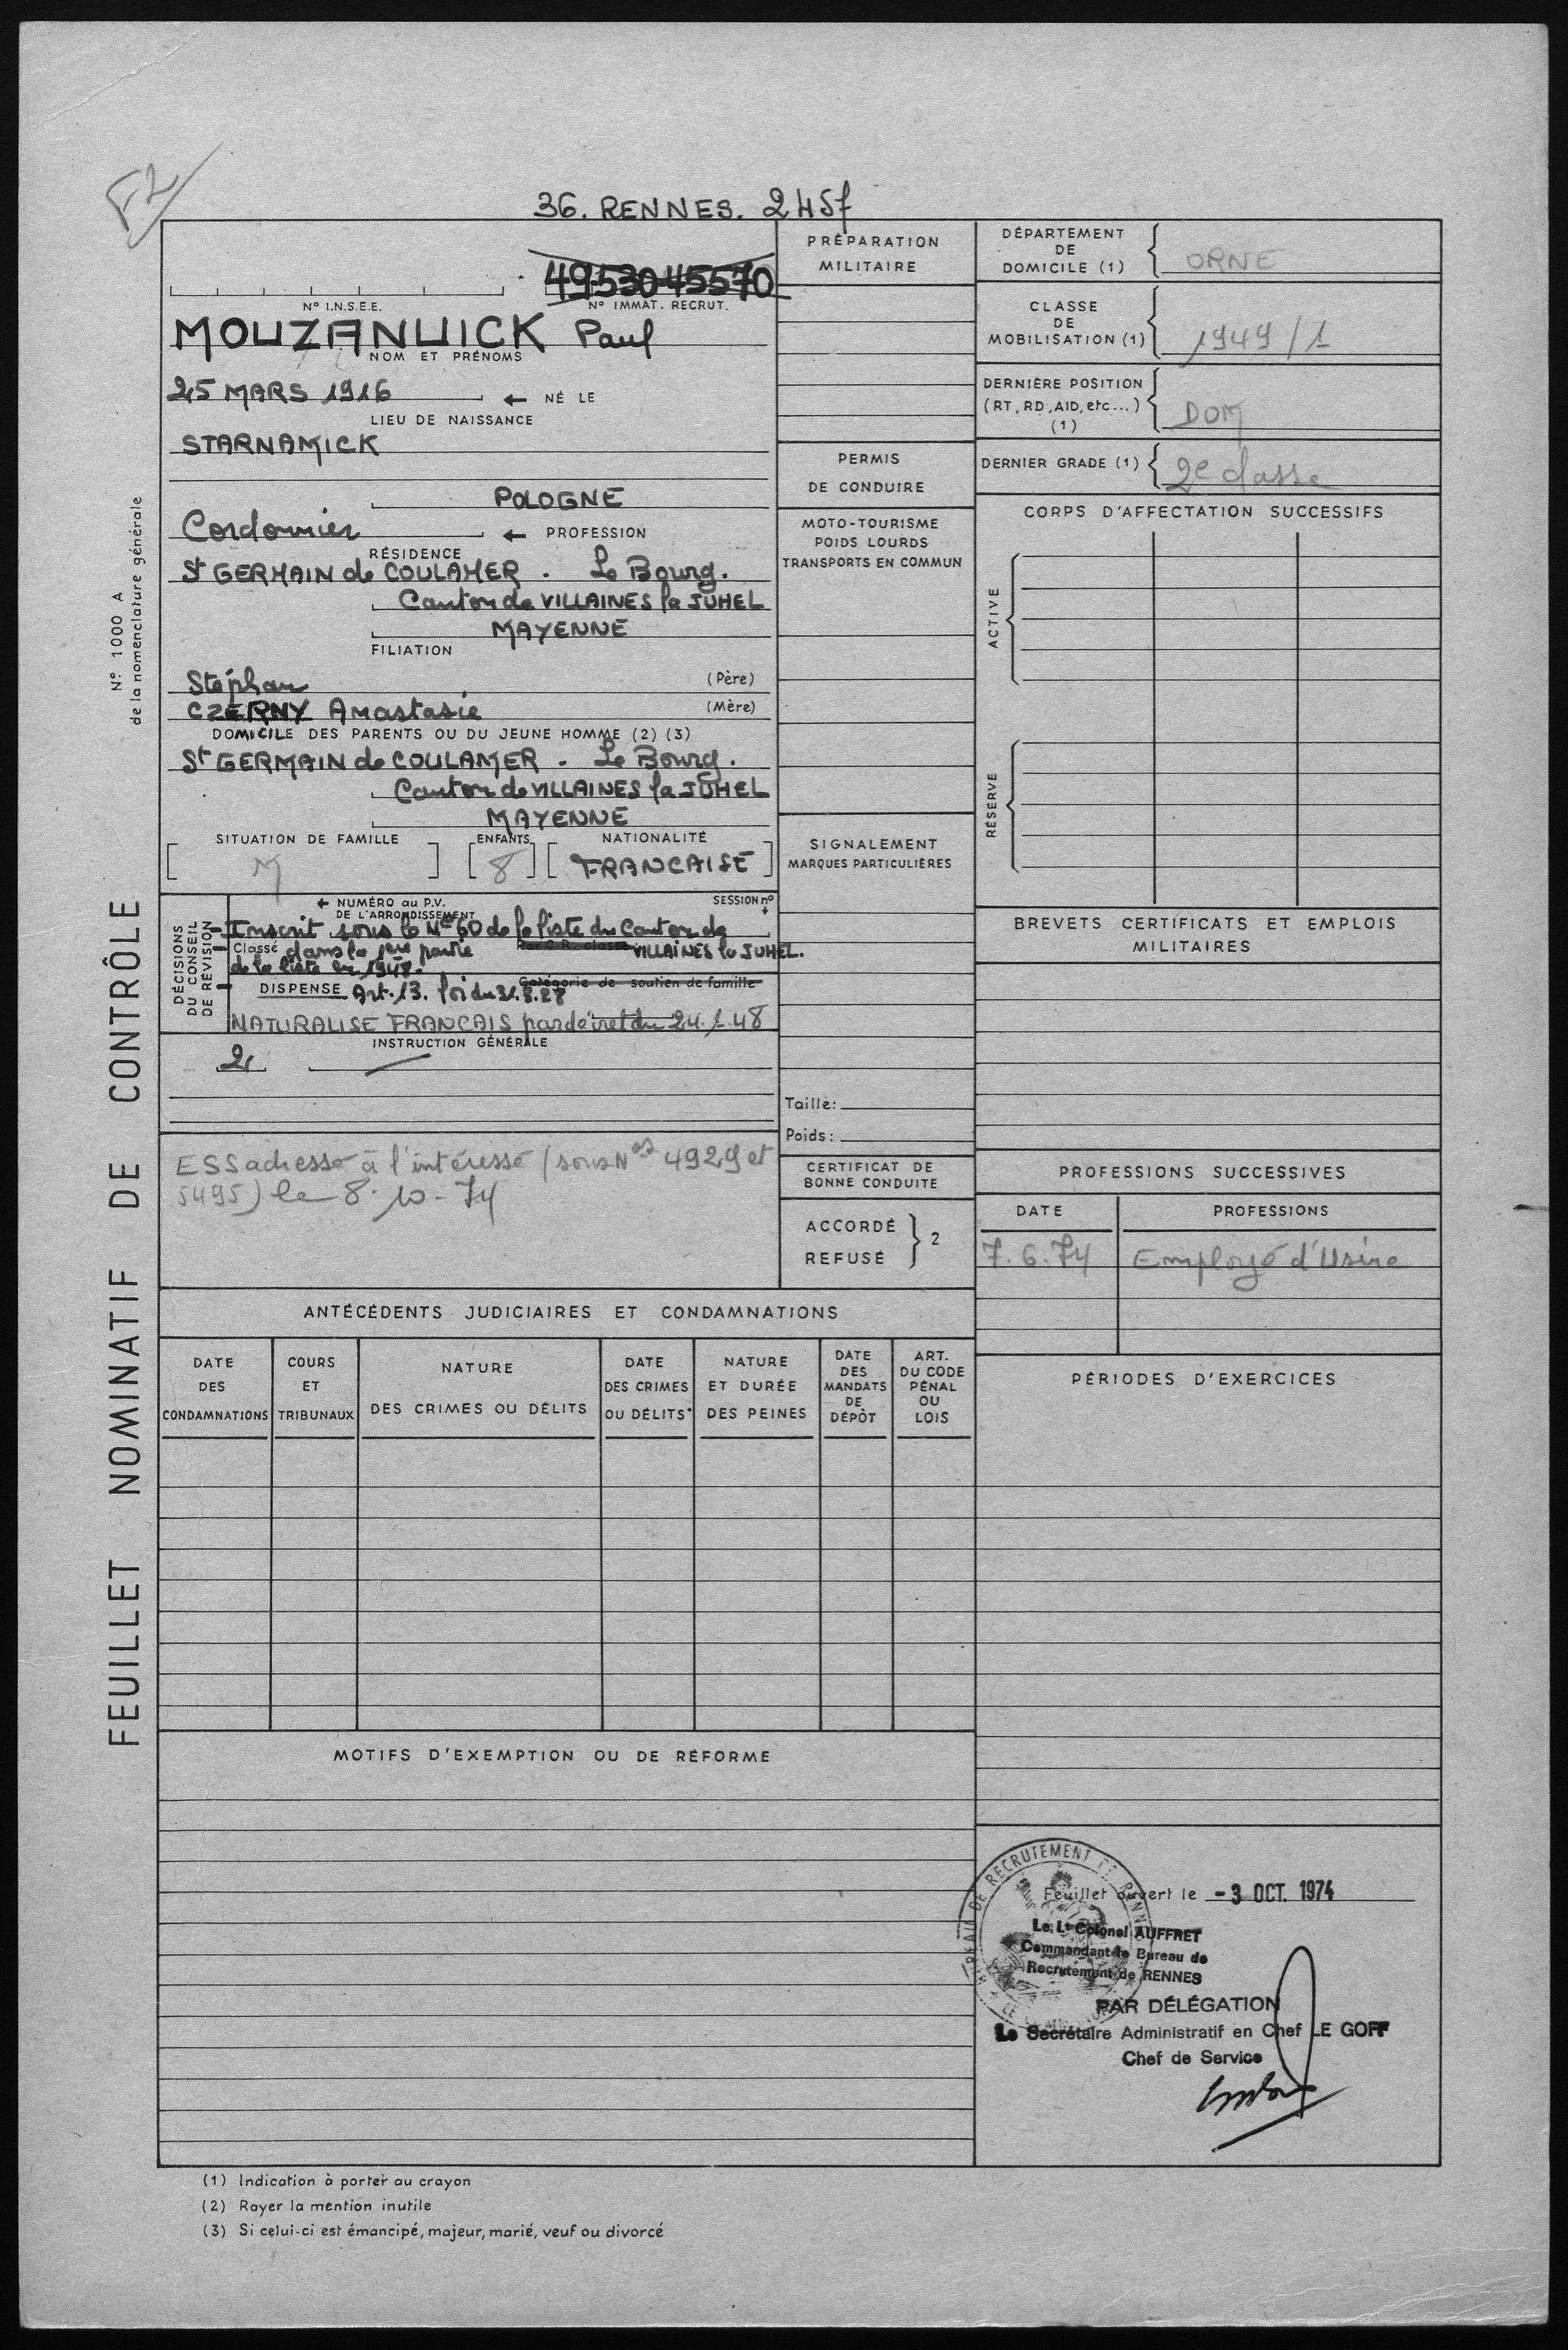 F2
36. RENNES. 2457
49530 45570
N° I.N.S.E.E.
N° IMMAT. RECRUT.
MOUZANUICK Paul
NOM ET PRÉNOMS
25 MARS 1916 ← NÉ LE
LIEU DE NAISSANCE
STARNAMICK
POLOGNE
Cordonnier ← PROFESSION
RÉSIDENCE
St GERMAIN de COULAMER . Le Bourg.
Canton de VILLAINES la JUHEL
MAYENNE
FILIATION
Stéphan (Père)
CZERNY Anastasie (Mère)
DOMICILE DES PARENTS OU DU JEUNE HOMME (2) (3)
St GERMAIN de COULAMER . Le Bourg.
Canton de VILLAINES la JUHEL
MAYENNE
SITUATION DE FAMILLE
M
ENFANTS
8
NATIONALITÉ
FRANCAISE
DÉCISIONS
DU CONSEIL
DE RÉVISION
← NUMÉRO au P.V.
DE L'ARRONDISSEMENT
SESSION n°
Inscrit sous le N° 60 de la liste du Canton de
Classé dans la 1ère partie VILLAINES la JUHEL.
de la liste en 1948.
Catégorie de soutien de famille
DISPENSE Art. 13. loi du 31.3.28
NATURALISE FRANCAIS par décret du 24.1.48
INSTRUCTION GÉNÉRALE
2
ESS adressé à l'intéressé (sous Nos 4929 et
5495) le 8.10-74
PRÉPARATION
MILITAIRE
PERMIS
DE CONDUIRE
MOTO-TOURISME
POIDS LOURDS
TRANSPORTS EN COMMUN
SIGNALEMENT
MARQUES PARTICULIÈRES
Taille:
Poids:
CERTIFICAT DE
BONNE CONDUITE
ACCORDÉ
REFUSÉ
2
DÉPARTEMENT
DE
DOMICILE (1)
ORNE
CLASSE
DE
MOBILISATION (1)
1949/1
DERNIÈRE POSITION
(RT, RD, AID, etc...)
(1)
DOM
DERNIER GRADE (1)
2e classe
CORPS D'AFFECTATION SUCCESSIFS
ACTIVE
RÉSERVE
BREVETS CERTIFICATS ET EMPLOIS
MILITAIRES
PROFESSIONS SUCCESSIVES
DATE PROFESSIONS
7.6.74 Employé d'Usine
PÉRIODES D'EXERCICES
ANTÉCÉDENTS JUDICIAIRES ET CONDAMNATIONS
DATE
DES
CONDAMNATIONS
COURS
ET
TRIBUNAUX
NATURE
DES CRIMES OU DÉLITS
DATE
DES CRIMES
OU DÉLITS
NATURE
ET DURÉE
DES PEINES
DATE
DES
MANDATS
DE
DÉPÔT
ART.
DU CODE
PÉNAL
OU
LOIS
MOTIFS D'EXEMPTION OU DE RÉFORME
BUREAU DE RECRUTEMENT DE RENNES
Feuillet ouvert le -3 OCT. 1974
Le Lt Colonel AUFFRET
Commandant le Bureau de
Recrutement de RENNES
PAR DÉLÉGATION
Le Secrétaire Administratif en Chef LE GOFF
Chef de Service
(1) Indication à porter au crayon
(2) Rayer la mention inutile
(3) Si celui-ci est émancipé, majeur, marié, veuf ou divorcé
N° 1000 A
de la nomenclature générale
FEUILLET NOMINATIF DE CONTRÔLE